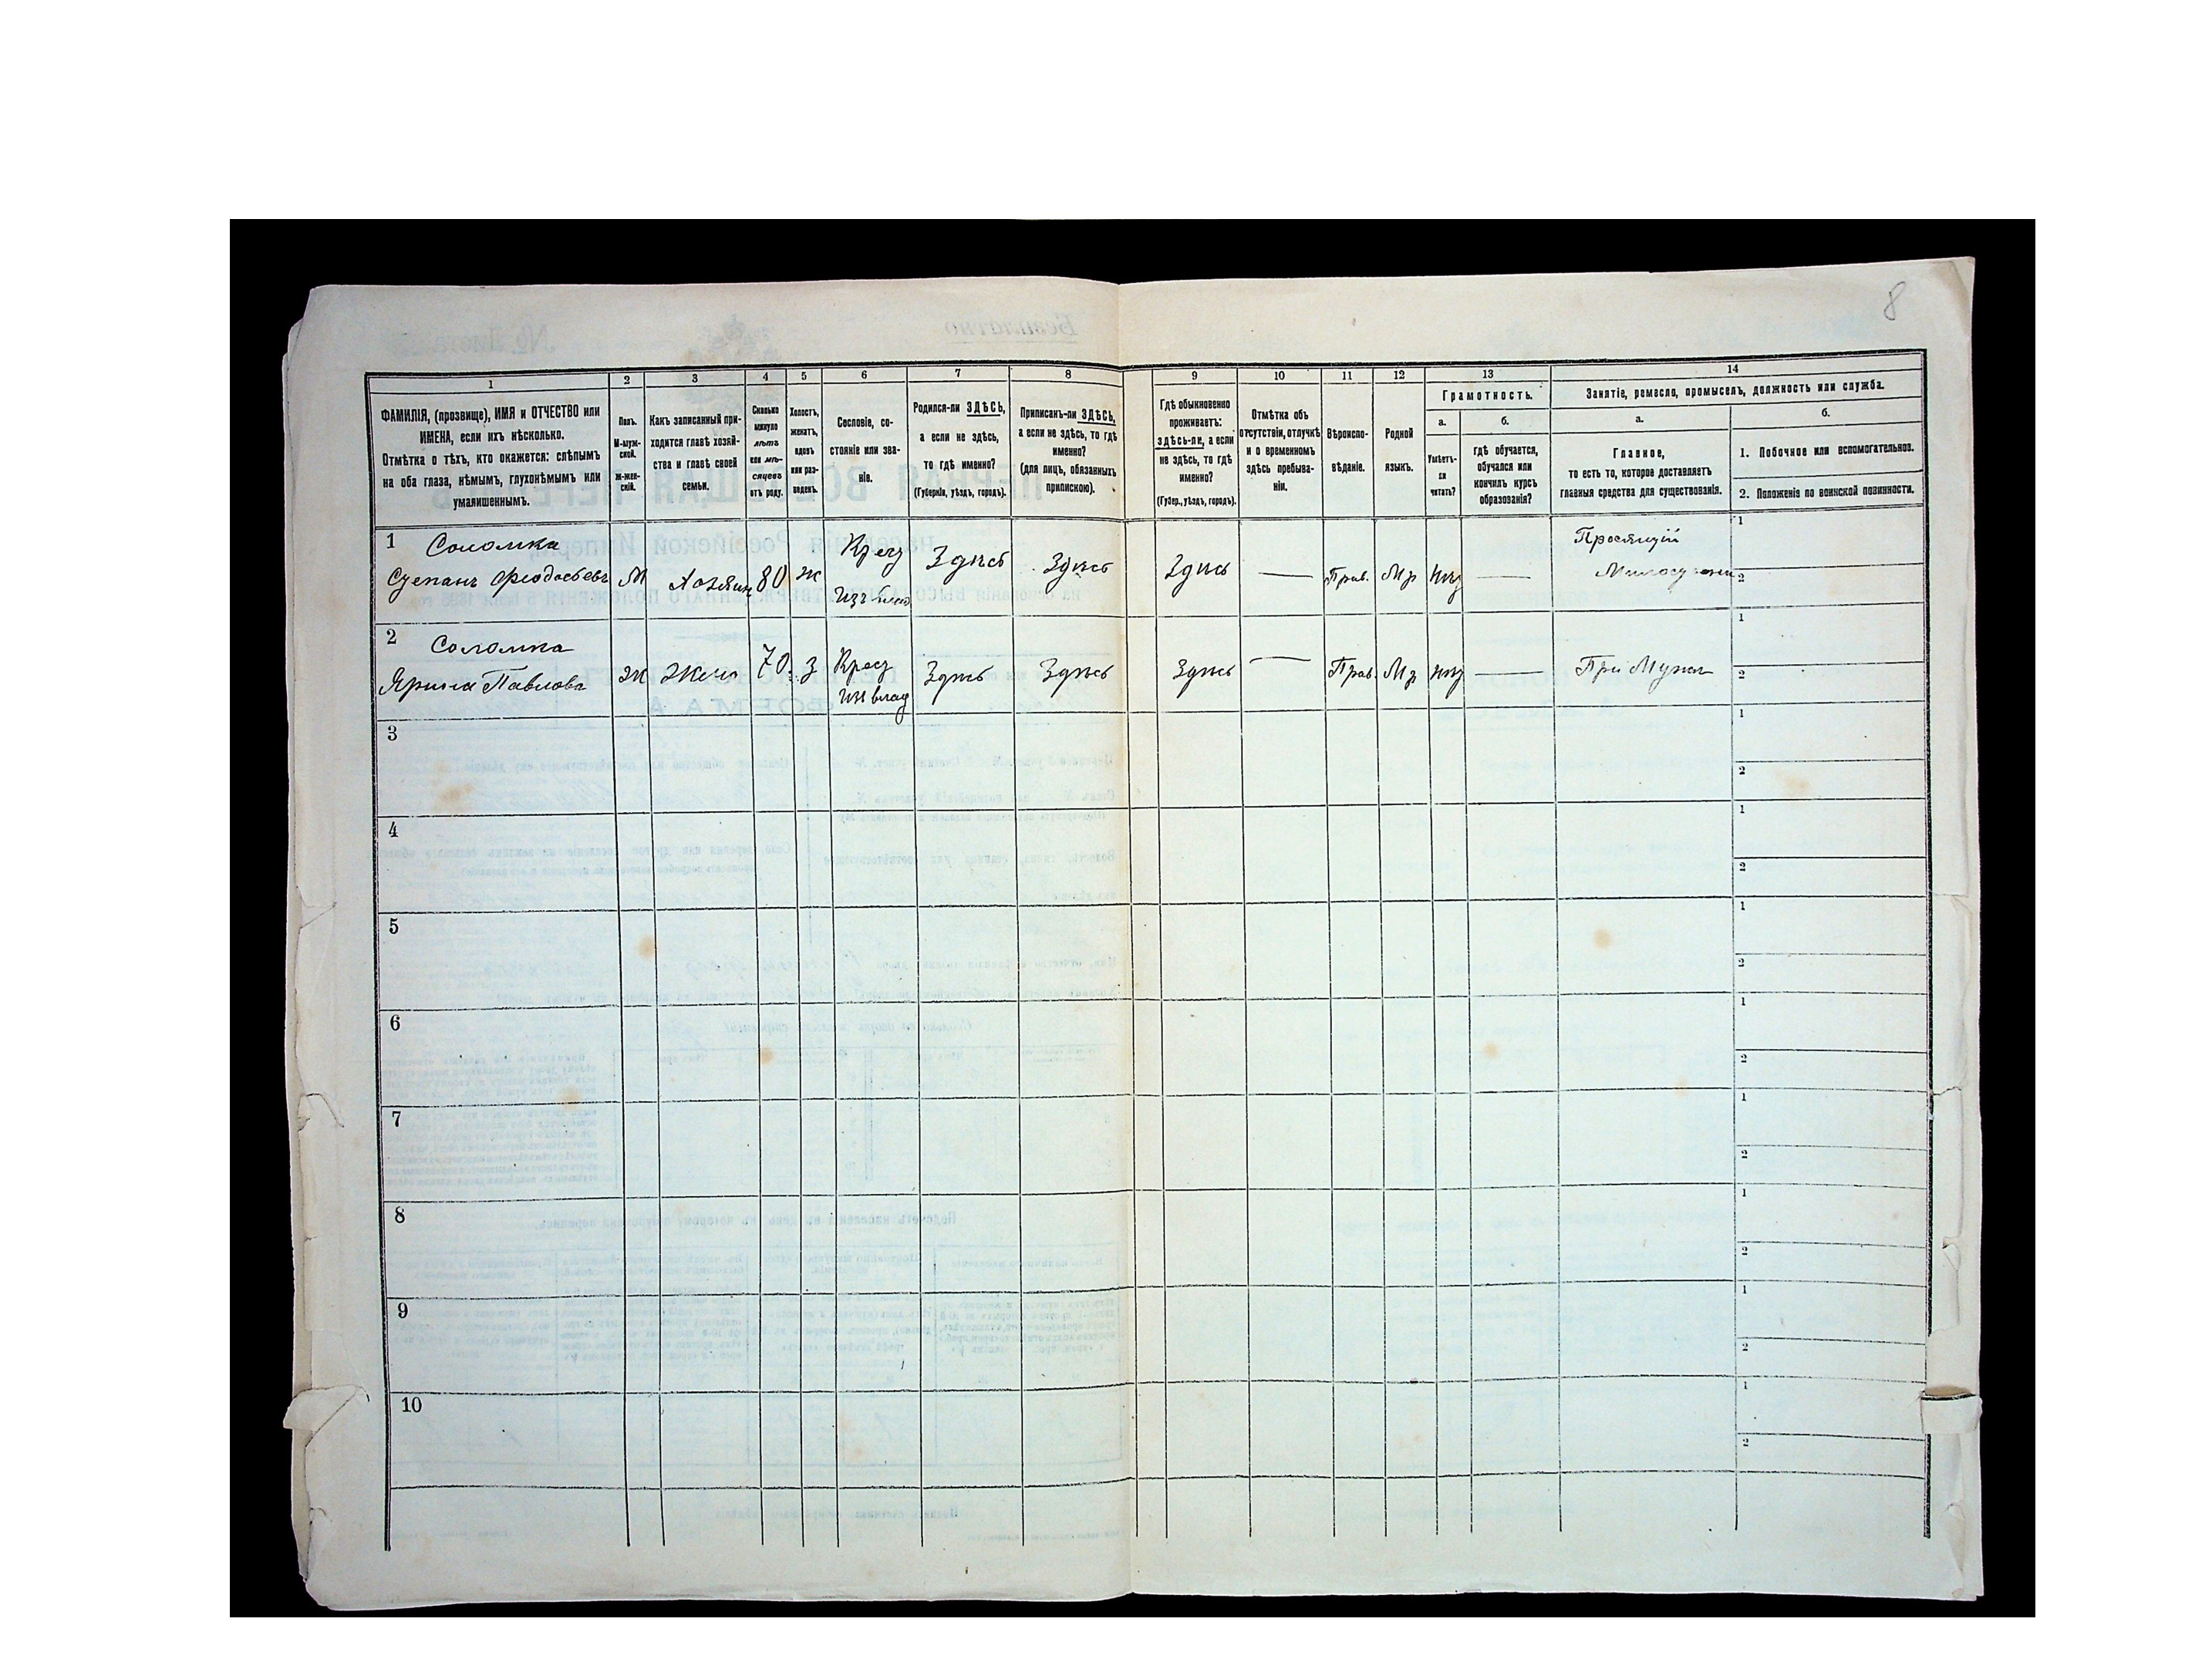 8
1
2
3
4
5
6
7
8
9
10
11
12
13
14
ФАМИЛІЯ, (прозвище), ИМЯ и ОТЧЕСТВО или
ИМЕНА, если ихъ нѣсколько.
Отмѣтка о тѣхъ, кто окажется: слѣпымъ
на оба глаза, нѣмымъ, глухонѣмымъ или
умалишеннымъ.
Полъ.
М-муж-
ской.
ж-жен-
скій.
Какъ записанный при-
ходится главѣ хозяй-
ства и главѣ своей
семьи.
Сколько
минуло
лѣтъ
или мѣ-
сяцевъ
отъ роду.
Холостъ,
женатъ,
вдовъ
или раз-
веденъ.
Сословіе, со-
стояніе или зва-
ніе.
Родился-ли ЗДѢСЬ,
а если не здѣсь,
то гдѣ именно?
(Губернія, уѣздъ, городъ).
Приписанъ-ли ЗДѢСЬ,
а если не здѣсь, то гдѣ
именно?
(для лицъ, обязанныхъ
припискою).
Гдѣ обыкновенно
проживаетъ:
здѣсь-ли, а если
не здѣсь, то гдѣ
именно?
(Губер., уѣздъ, городъ).
Отмѣтка объ
отсутствіи, отлучкѣ
и о временномъ
здѣсь пребыва-
ніи.
Вѣроиспо-
вѣданіе.
Родной
языкъ.
Грамотность.
а.
Умѣетъ-
ли
читать?
б.
гдѣ обучается,
обучался или
кончилъ курсъ
образованія?
Занятіе, ремесло, промыселъ, должность или служба.
а.
Главное,
то есть то, которое доставляетъ
главныя средства для существованія.
б.
1. Побочное или вспомогательное.
2. Положеніе по воинской повинности.
1 Соломка
Степанъ Феодосьевъ М Хозяинъ 80 ж Крест Здѣсь Здѣсь Здѣсь — Прав. Мр нѣт — Просящій
изъ
1
2
2 Соломка
Ярина Павлова Ж Жена 70 З Крест Здѣсь Здѣсь Здѣсь — Прав. Мр нѣт — При Мужѣ
из влад
1
2
3
1
2
4
1
2
5
1
2
6
1
2
7
1
2
8
1
2
9
1
2
10
1
2